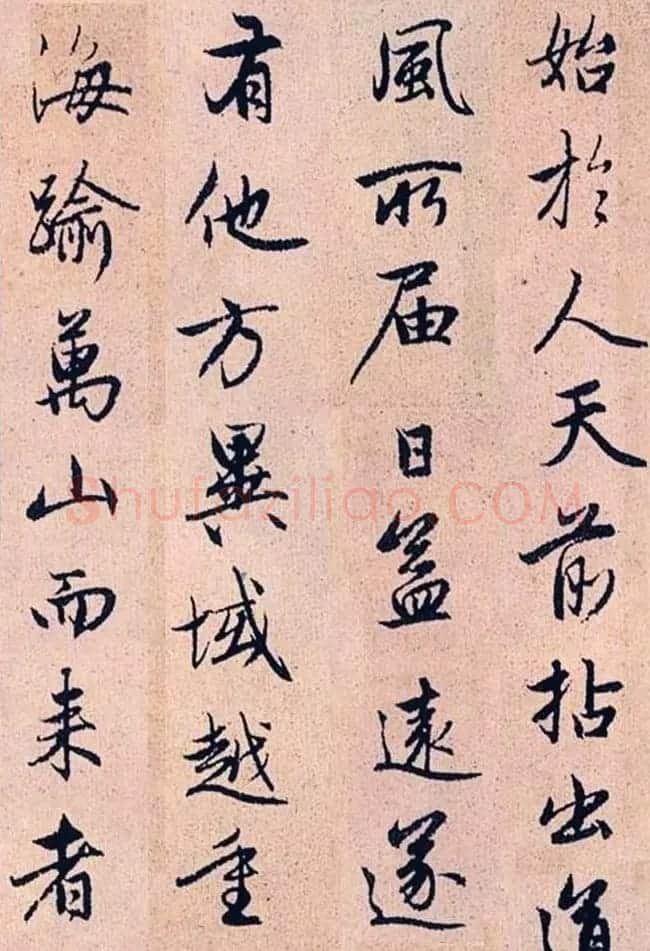 始於人天前拈出道
風所届日益遠遂
有他方異域越重
海踰萬山而来者